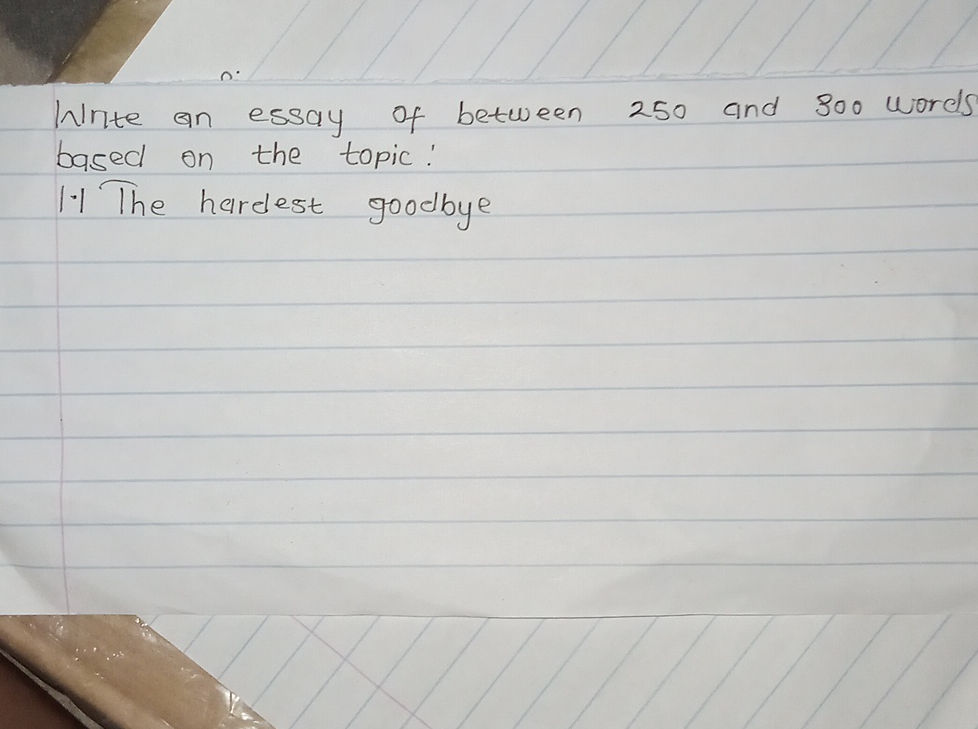 Write an essay of between 250 and 300 words
based on the topic:
1.1 The hardest goodbye